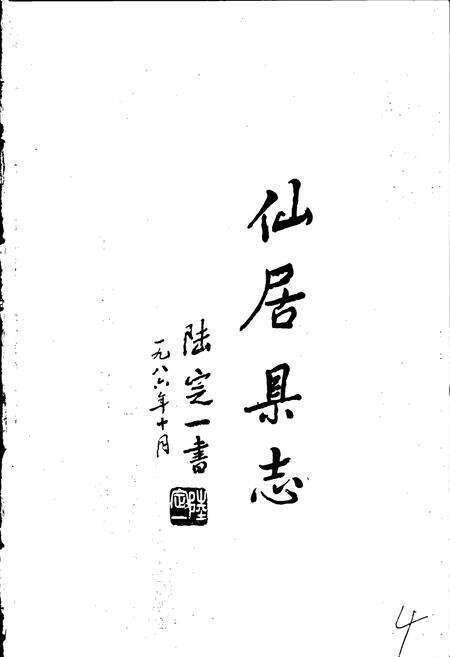 仙居县志
陆定一书
一九八六年十月
陸定一
4